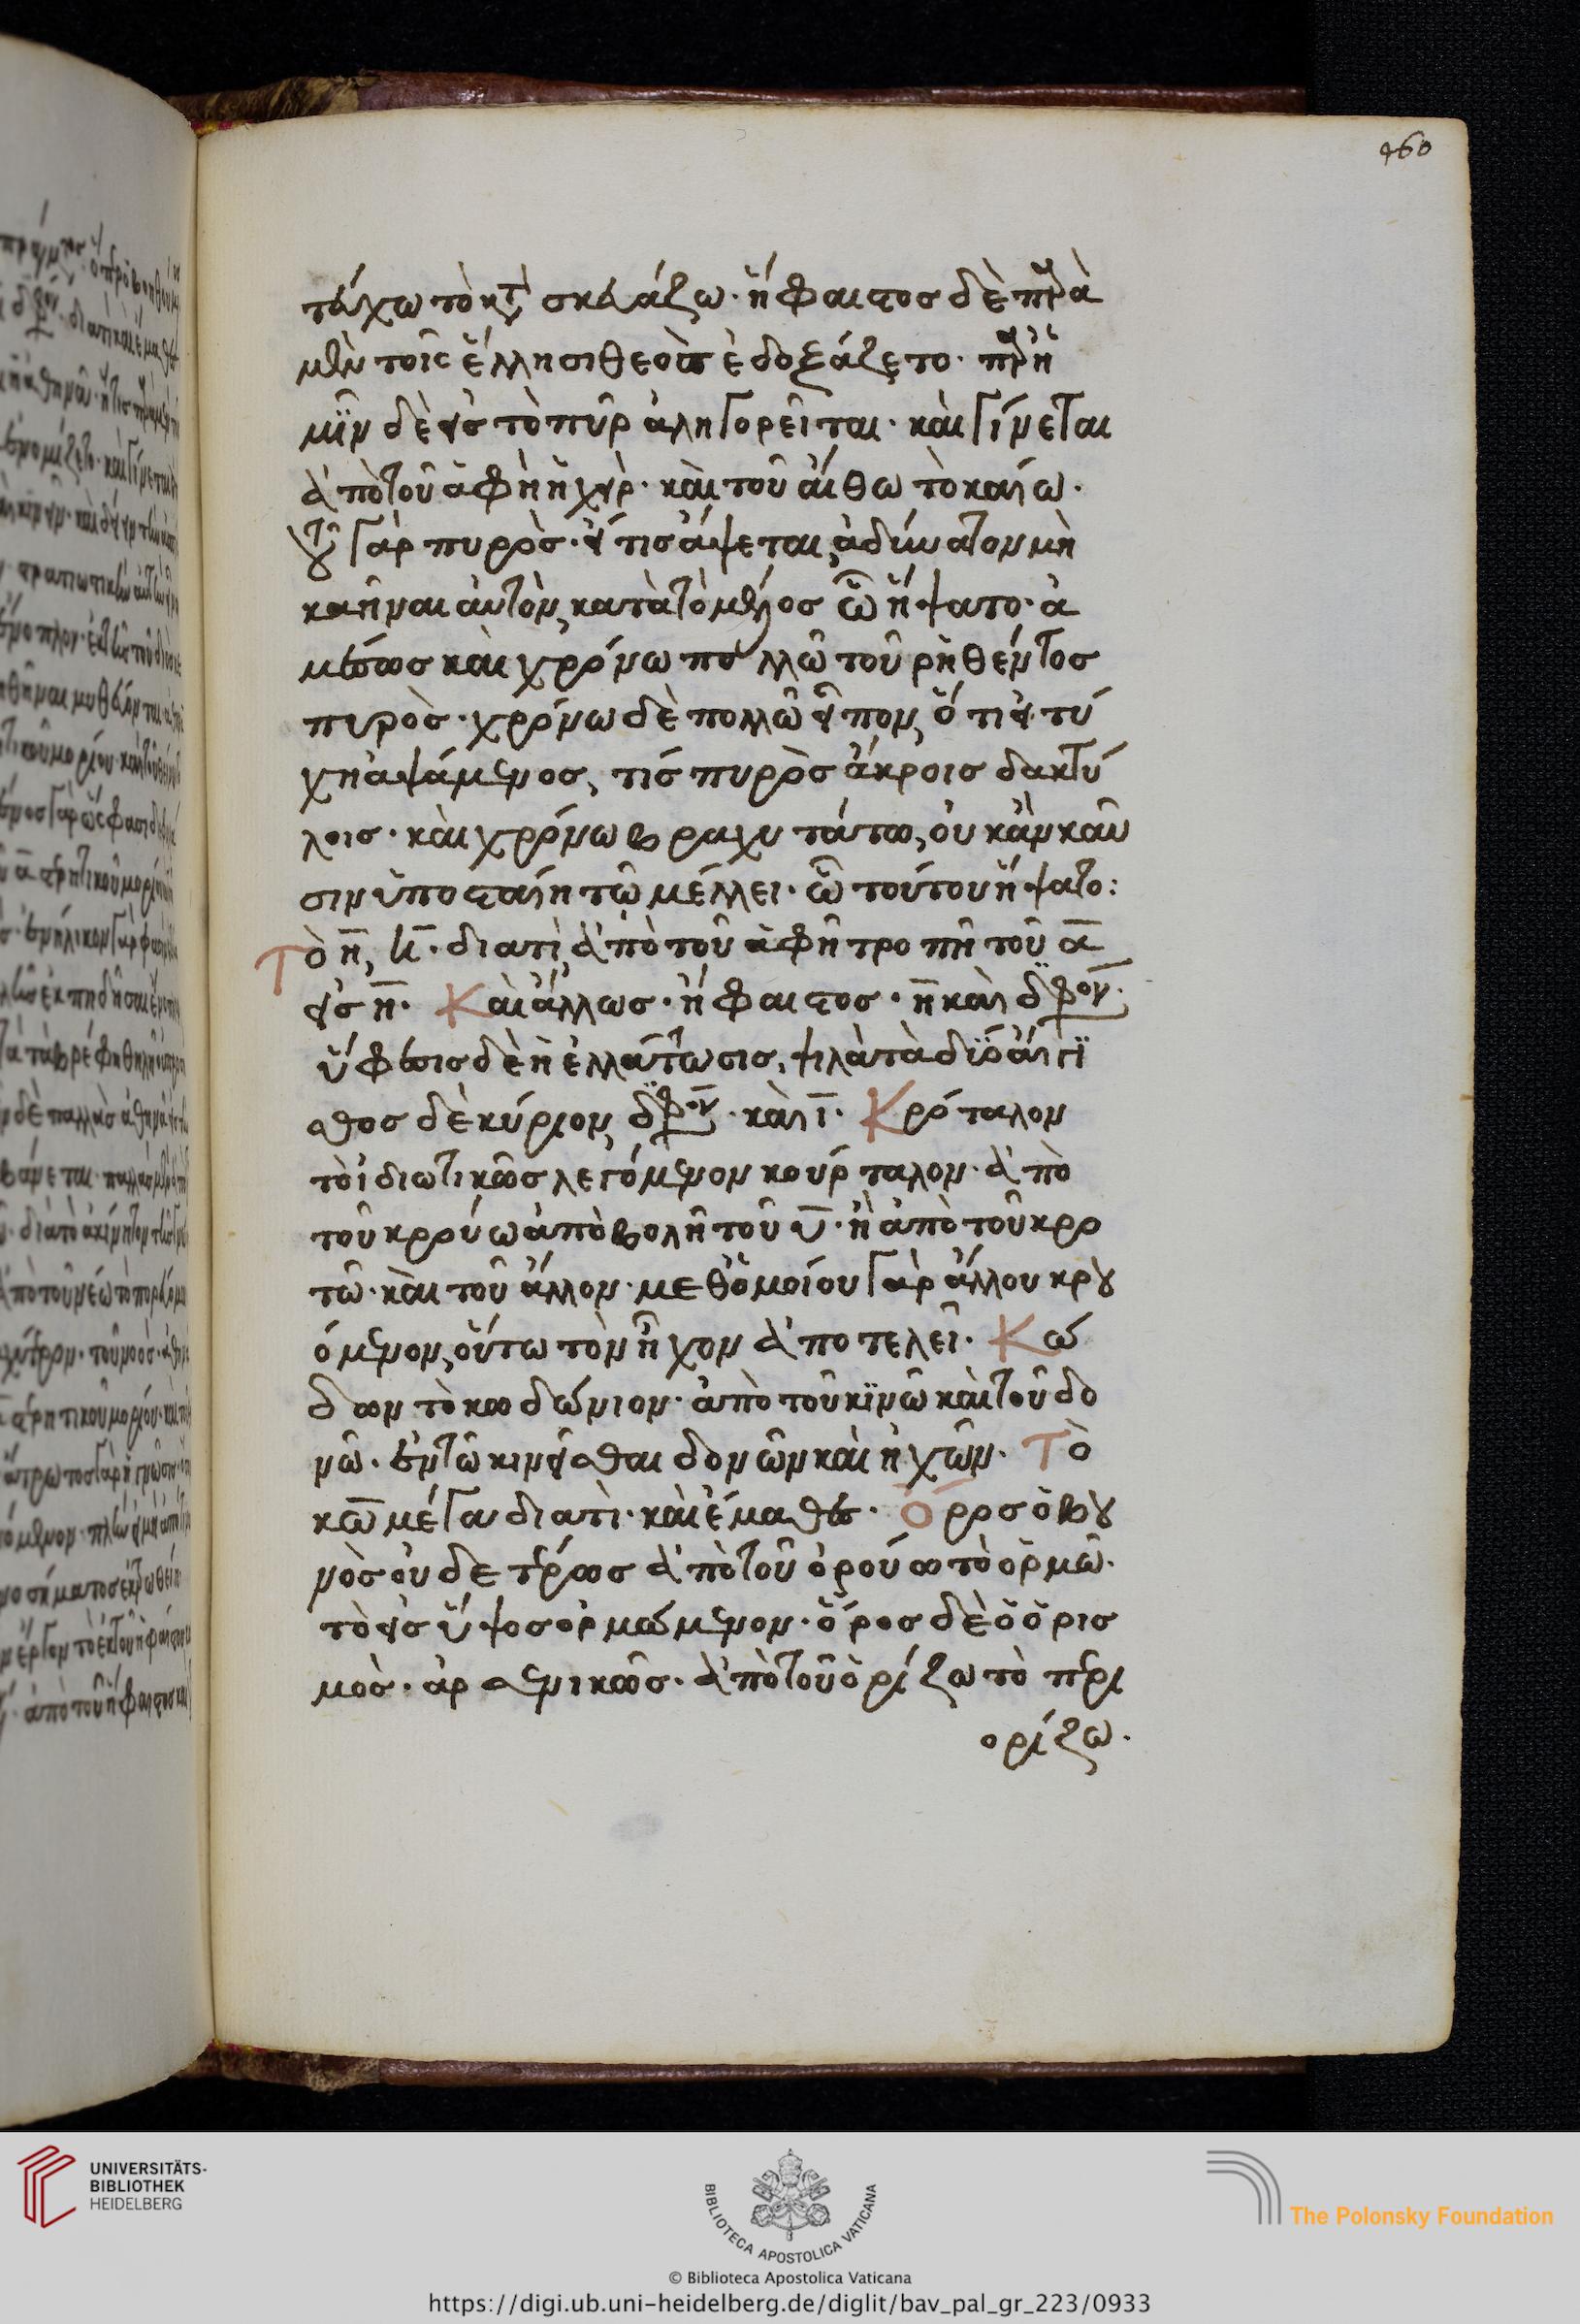 460
τεύχω τὸ κατασκευάζω. ἥφαιστος δὲ παρὰ
μὲν τοῖς ἕλλησι θεὸς ἐδοξάζετο. παρ' ἡ
μῖν δὲ εἰς τὸ πῦρ ἀληγορεῖται. καὶ γίνεται
ἀπὸ τοῦ ἁφὴ ἡ χεὶρ. καὶ τοῦ αἴθω τὸ καίω.
τοῦ γὰρ πυρὸς. εἴ τις ἅψεται, ἀδύνατον μὴ
καῆναι αὐτὸν, κατὰ τὸ μέρος ὧ ἥψατο. ἀ
μέσως καὶ χρόνω πολλῶ τοῦ ῥηθέντος
πυρὸς. χρόνω δὲ πολλῶ εἶπον, ὅτι εἰ τύ
χη ἁψάμενος, τίς πυρὸς ἄκροις δακτύ
λοις. καὶ χρόνω βραχυτάτω, οὐκ ἂν καῦ
σιν ὑποσταίη τῶ μέλλει. ὧ τούτου ἥψατο:
Τὸ η, διατὶ, ἀπὸ τοῦ ἁφῆ τροπῆ τοῦ α
εἰς η. Καὶ ἄλλως. ἥφαιστος. η καὶ δίφθογγον.
ὕφεσις δὲ ἡ ἐλλάττωσις, ψιλὰ τὰ δύο
κύριον, δίφθογγον. καὶ ι. Κρόταλον
τὸ ἰδιωτικῶς λεγόμενον κούρταλον. ἀπὸ
τοῦ κρούω ἀποβολῆ τοῦ υ. ἢ ἀπὸ τοῦ κρο
τῶ. καὶ τοῦ ἄλλον. μεθ' ὁμοίου γὰρ ἄλλου κρου
όμενον, οὕτω τὸν ἦχον ἀποτελεῖ. Κώ
δων τὸ κωδώνιον. ἀπὸ τοῦ κινῶ καὶ τοῦ δο
νῶ. ἐν τῶ κινεῖσθαι δονῶν καὶ ἠχῶν. Τὸ
κω μέγα διατὶ. καὶ ἔμαθες. Ὄρος ὁ βου
νὸς οὐδετέρως ἀπὸ τοῦ ὀρούω τὸ ὁρμῶ.
τὸ εἰς ὕψος ὁρμώμενον. ὅρος δὲ ὁ ὁρισ
μὸς. ἀρσενικῶς. ἀπὸ τοῦ ὁρίζω τὸ περι
ορίζω.
UNIVERSITÄTS-
BIBLIOTHEK
HEIDELBERG
BIBLIOTECA APOSTOLICA VATICANA
The Polonsky Foundation
© Biblioteca Apostolica Vaticana
https://digi.ub.uni-heidelberg.de/diglit/bav_pal_gr_223/0933